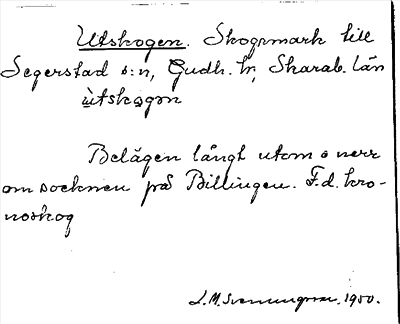 Utskogen. Skogsmark till
Segerstad s:n, Gudh. hr, Skarab. län
ùtskogan
Belägen långt utom o nerr
om socknen på Billingen. F.d. kro-
noskog
J.M. 1950.